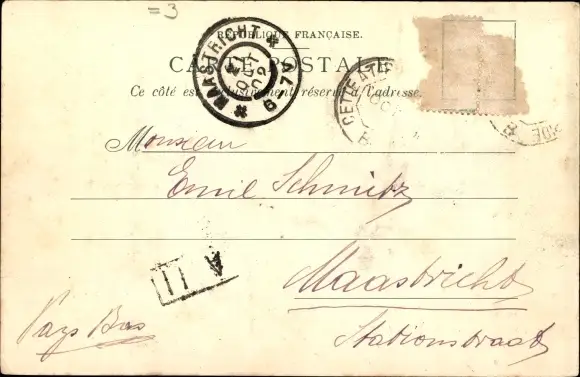 =3
RÉPUBLIQUE FRANÇAISE.
CARTE POSTALE
Ce côté est exclusivement réservé à l'adresse.
MAASTRICHT
OCT
02
6-7V
CETTE A
Monsieur
Emil Schmitz
Maastricht
Stationstraat
Pays Bas
A 11